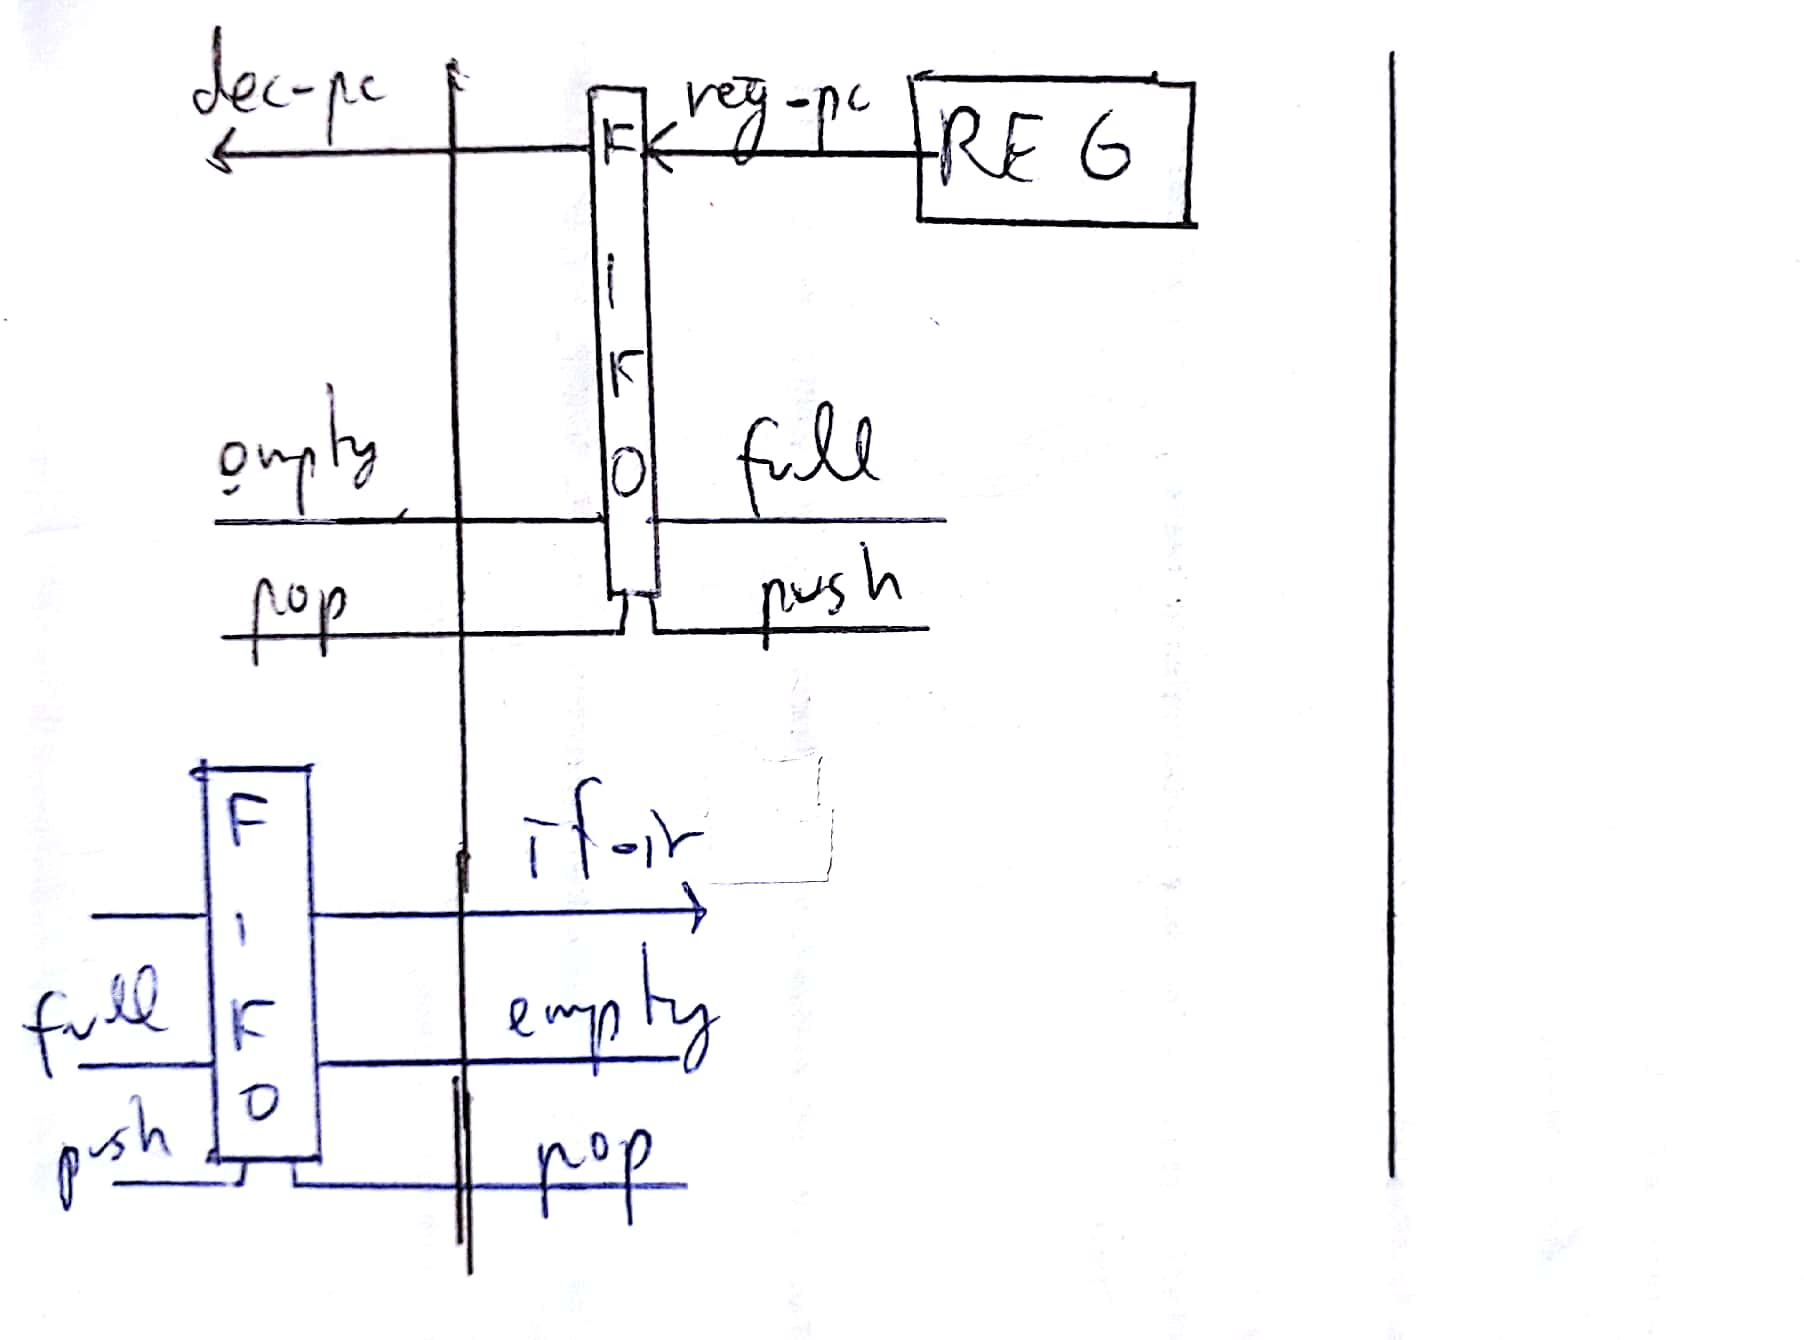 dec-pc
reg-pc
REG
FIFO
empty
full
pop
push
FIFO
if-ir
full
empty
push
pop